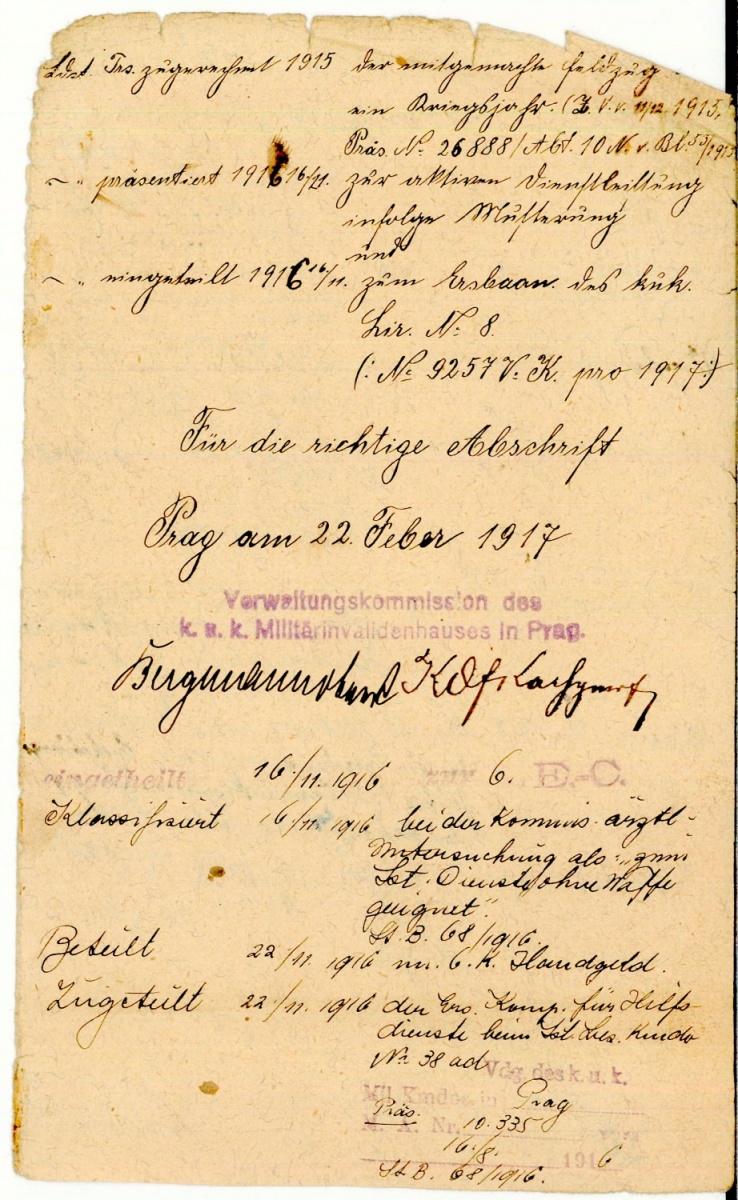 Ldst. Trs. zugerechnet 1915 der mitgemachte Feldzug
ein Kriegsjahr. (Z. V. v. 11/12 1915,
Präs. No 26888/Abt. 10 N. v. Bl. 53/1915
~ " präsentiert 1916 16/11. zur aktiven Dienstleistung
infolge Musterung
und
~ " eingeteilt 1916 16/11. zum Ersbaon. des kuk.
Lir. No 8.
(: No 9257 V. K. pro 1917:)
Für die richtige Abschrift
Prag am 22. Feber 1917
Verwaltungskommission des
k. u. k. Militärinvalidenhauses in Prag.
Bergmann
eingetheilt 16/11 1916 zur 6. E.-C.
Klassifiziert 16/11 1916 bei der Kommis. ärztl.
Untersuchung als: "zum
Lst. Dienste ohne Waffe
geeignet".
St. B. 68/1916.
Beteilt 22/11. 1916 m. 6. K. Handgeld.
Zugeteilt 22/11. 1916 der Ers. Komp. für Hilfs-
dienste beim Lst. Bes. Kmdo
No 38 ad Vdg. des k. u. k.
Mil. Kmdos in Prag
Präs. 10.335
M. A. Nr.
16/8. 1916
St. B. 68/1916.